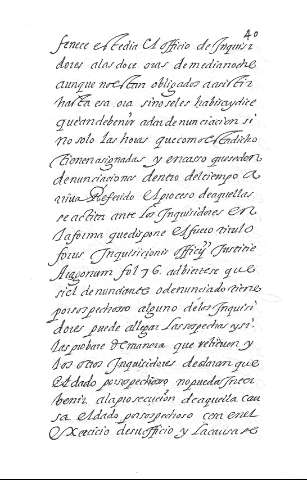 40
fenece este dia el officio de Inquisi
dores a las doce oras de medianoche
aunque no estan obligados a asistir
hasta esa ora si no se les habisa y dice
que an de benir a dar denunciacion si
no solo las horas que como esta dicho
tienen asignadas y en caso que se den
denunciaciones dentro del tiempo a
Referido el proceso de aquellas
se actita ante los Inquisidores en
la forma que dispone el fuero titulo
forus Inquisicionis officij Iusticie
Aragonum fol 76. adbiertese que
si el denunciante o denunciado tiene
por sospechoso alguno de los Inquisi
dores puede allegar las sospechas y si
las probare de manera que
los otros Inquisidores declaran que
el dado por sospechoso no pueda inter
benir a la prosecucion de aquella cau
sa el dado por sospechoso cesa en el
Exercicio de su officio y la causa se